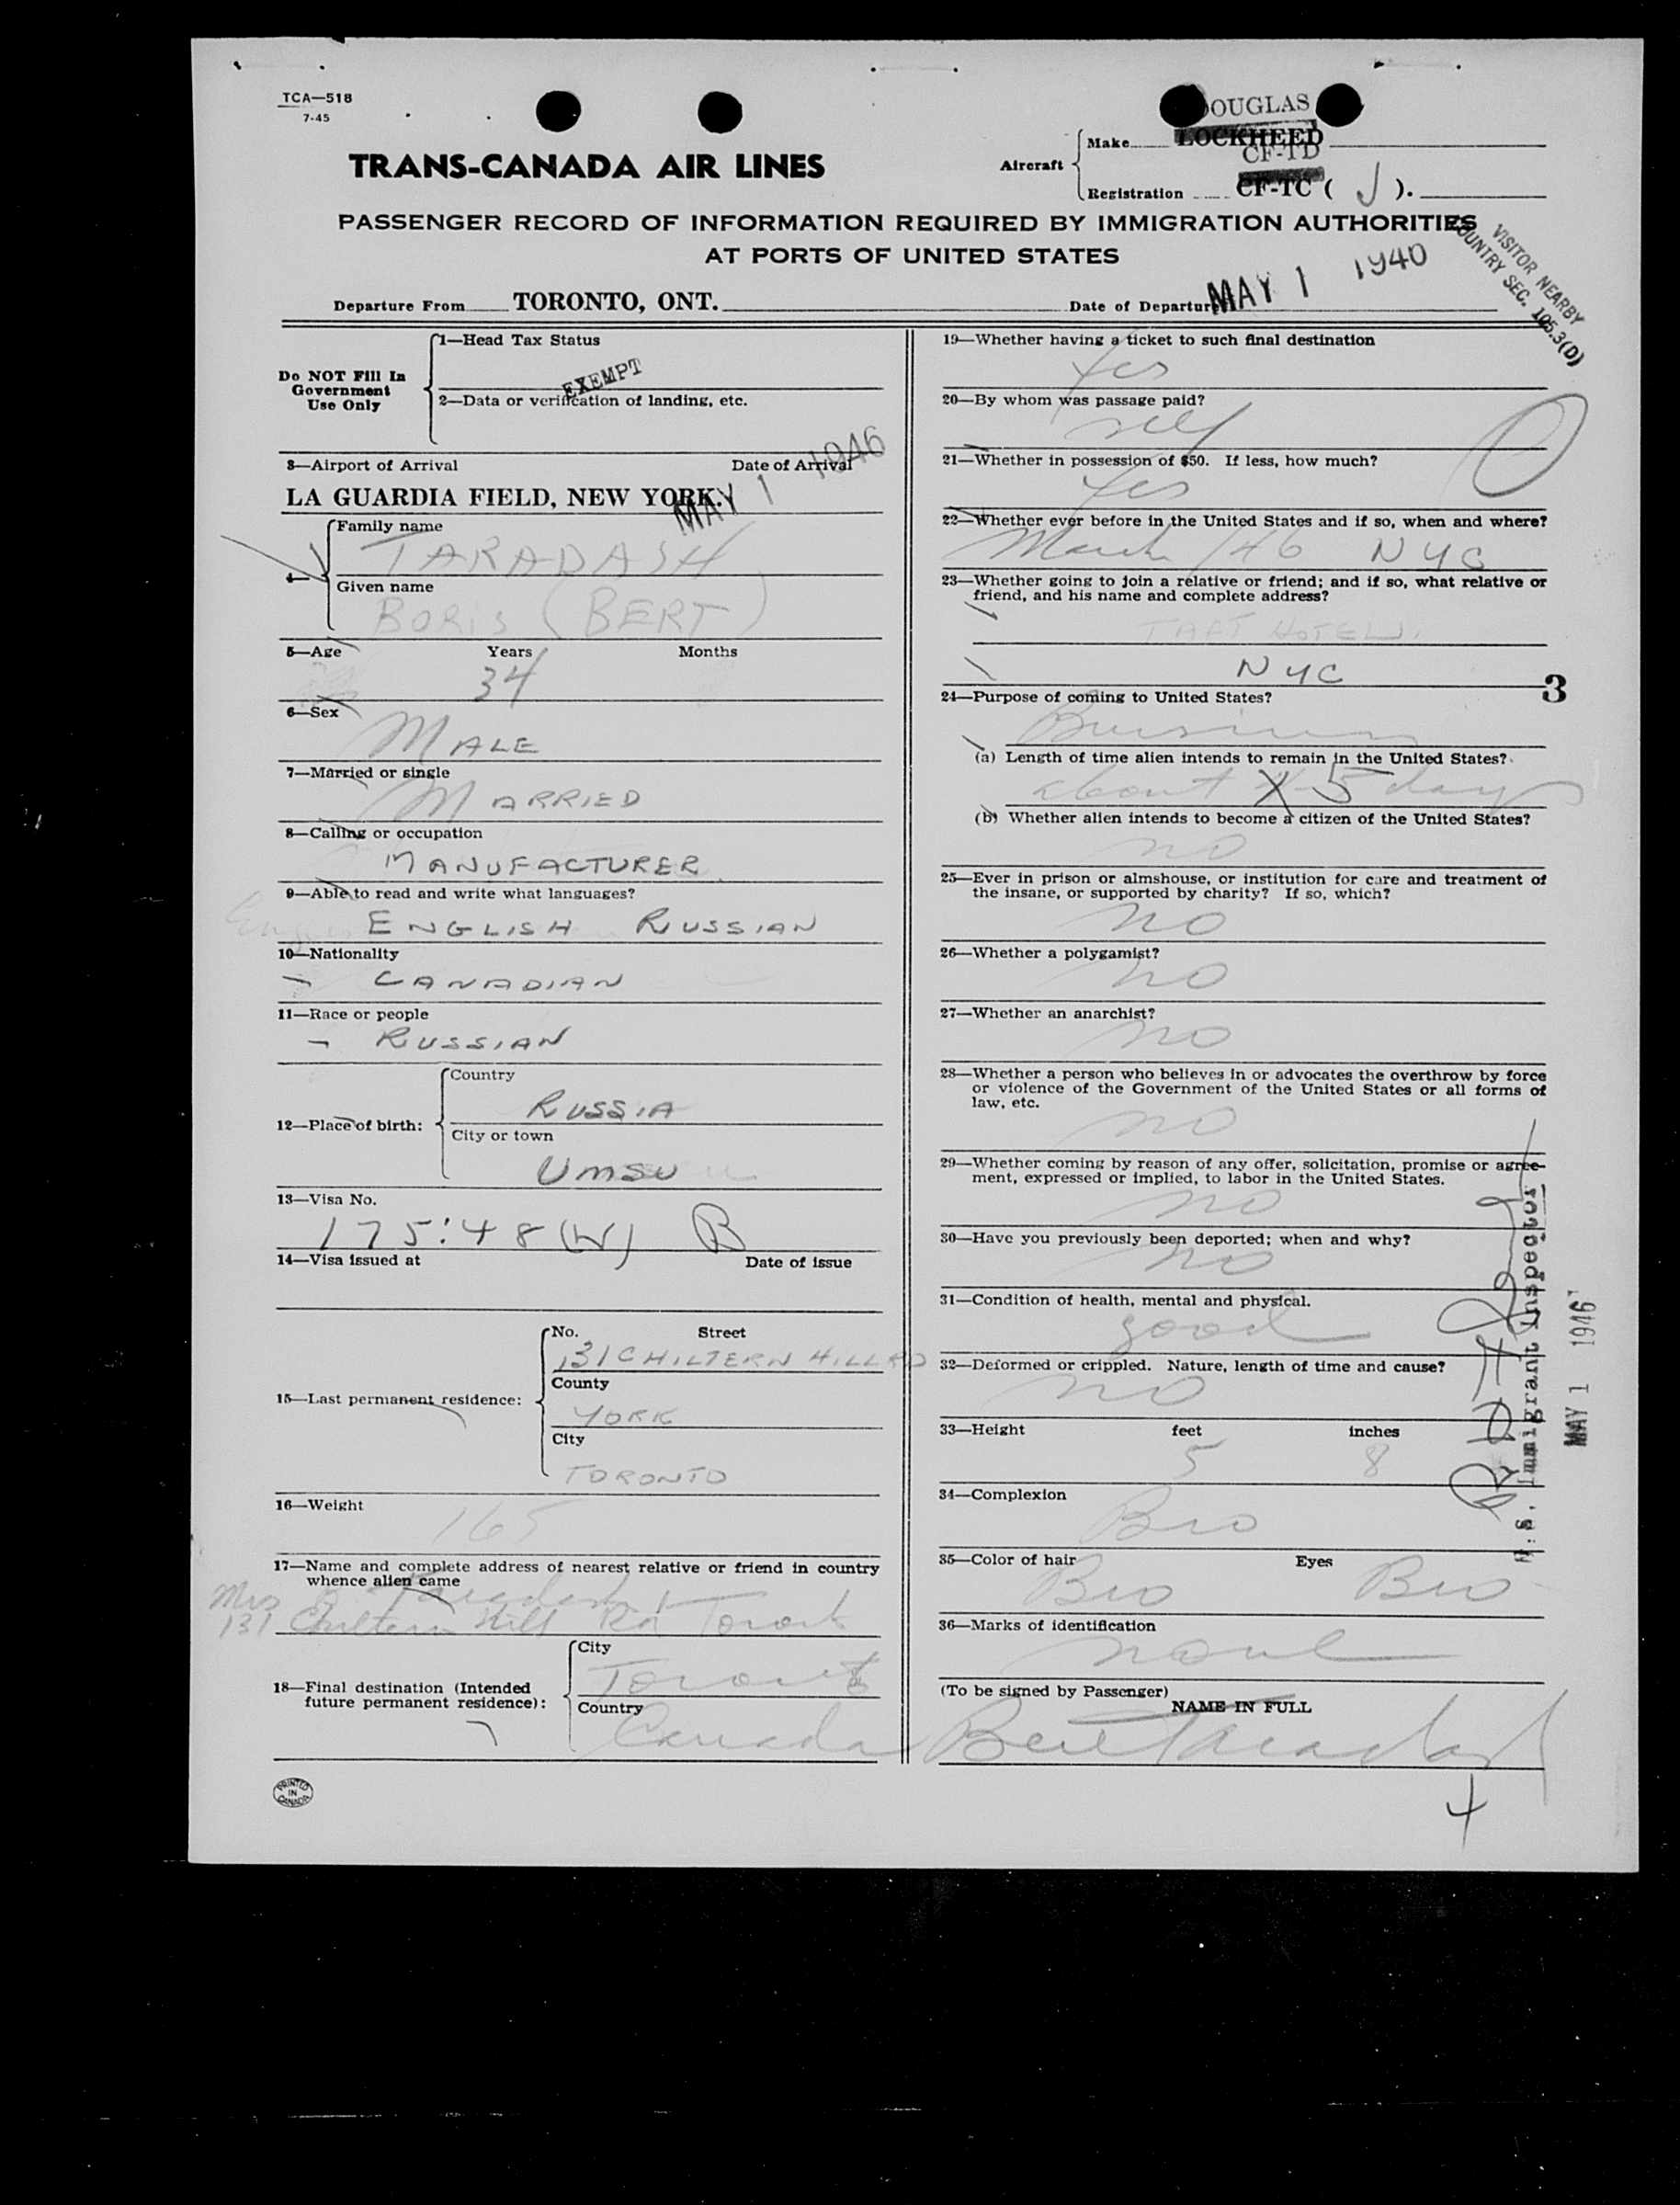 TCA—518
7-45
DOUGLAS
LOCKHEED
CF-TD
Aircraft
Make
Registration CF-TC ( J ).
TRANS-CANADA AIR LINES
PASSENGER RECORD OF INFORMATION REQUIRED BY IMMIGRATION AUTHORITIES
AT PORTS OF UNITED STATES
VISITOR NEARBY
COUNTRY SEC. 105.3(D)
Departure From TORONTO, ONT.
Date of Departure MAY 1 1946
Do NOT Fill In
Government
Use Only
1—Head Tax Status
EXEMPT
2—Data or verification of landing, etc.
3—Airport of Arrival Date of Arrival
LA GUARDIA FIELD, NEW YORK.
MAY 1 1946
4—
Family name
TARADASH
Given name
BORIS (BERT)
5—Age Years Months
34
6—Sex
MALE
7—Married or single
MARRIED
8—Calling or occupation
MANUFACTURER
9—Able to read and write what languages?
ENGLISH RUSSIAN
10—Nationality
CANADIAN
11—Race or people
RUSSIAN
12—Place of birth:
Country
RUSSIA
City or town
UMSU
13—Visa No.
175:48(W) B
14—Visa issued at Date of issue
15—Last permanent residence:
No. Street
131 CHILTERN HILL RD
County
YORK
City
TORONTO
16—Weight
165
17—Name and complete address of nearest relative or friend in country
whence alien came
Mrs Taradash
131 Chiltern Hill Rd Toronto
18—Final destination (Intended
future permanent residence):
City
Toronto
Country
Canada
PRINTED
IN
CANADA
19—Whether having a ticket to such final destination
Yes
20—By whom was passage paid?
self
21—Whether in possession of $50. If less, how much?
Yes
22—Whether ever before in the United States and if so, when and where?
March /46 NYC
23—Whether going to join a relative or friend; and if so, what relative or
friend, and his name and complete address?
TAFT HOTEL
NYC
3
24—Purpose of coming to United States?
Business
(a) Length of time alien intends to remain in the United States?
about 5 days
(b) Whether alien intends to become a citizen of the United States?
no
25—Ever in prison or almshouse, or institution for care and treatment of
the insane, or supported by charity? If so, which?
no
26—Whether a polygamist?
no
27—Whether an anarchist?
no
28—Whether a person who believes in or advocates the overthrow by force
or violence of the Government of the United States or all forms of
law, etc.
no
29—Whether coming by reason of any offer, solicitation, promise or agree-
ment, expressed or implied, to labor in the United States.
no
30—Have you previously been deported; when and why?
no
31—Condition of health, mental and physical.
good
32—Deformed or crippled. Nature, length of time and cause?
no
33—Height feet inches
5 8
34—Complexion
Bro
35—Color of hair Eyes
Bro Bro
36—Marks of identification
none
(To be signed by Passenger)
NAME IN FULL
Bert Taradash
U.S. Immigrant Inspector
MAY 1 1946